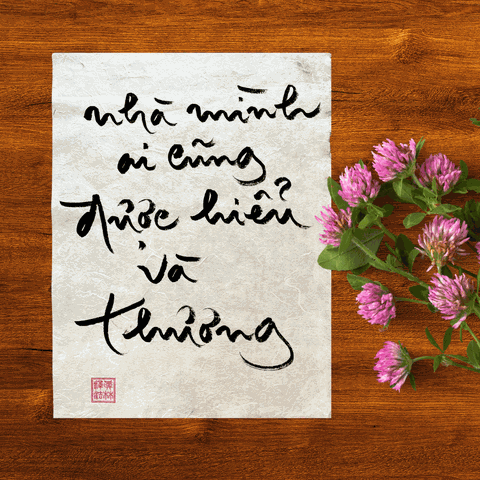 nhà mình
ai cũng
được hiểu
và
thương